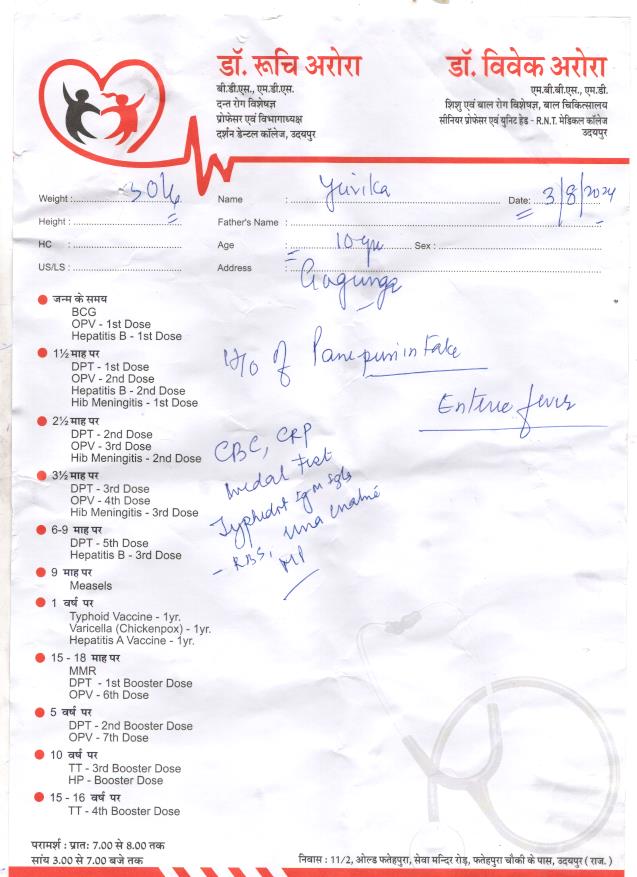 डॉ. रूचि अरोरा
बी.डी.एस., एम.डी.एस.
दन्त रोग विशेषज्ञ
प्रोफेसर एवं विभागाध्यक्ष
दर्शन डेन्टल कॉलेज, उदयपुर
डॉ. विवेक अरोरा
एम.बी.बी.एस., एम.डी.
शिशु एवं बाल रोग विशेषज्ञ, बाल चिकित्सालय
सीनियर प्रोफेसर एवं यूनिट हेड - R.N.T. मेडिकल कॉलेज
उदयपुर
Weight : 30 Name : Yuvika Date: 3/8/2024
Height : Father's Name :
HC : Age : 10 Sex :
US/LS : Address :
H/O of Pani puri intake
Enteric fever
CBC, CRP
Widal Test
Typhidot IgM IgG
- RBS,
MP
जन्म के समय
BCG
OPV - 1st Dose
Hepatitis B - 1st Dose
1½ माह पर
DPT - 1st Dose
OPV - 2nd Dose
Hepatitis B - 2nd Dose
Hib Meningitis - 1st Dose
2½ माह पर
DPT - 2nd Dose
OPV - 3rd Dose
Hib Meningitis - 2nd Dose
3½ माह पर
DPT - 3rd Dose
OPV - 4th Dose
Hib Meningitis - 3rd Dose
6-9 माह पर
DPT - 5th Dose
Hepatitis B - 3rd Dose
9 माह पर
Measels
1 वर्ष पर
Typhoid Vaccine - 1yr.
Varicella (Chickenpox) - 1yr.
Hepatitis A Vaccine - 1yr.
15 - 18 माह पर
MMR
DPT - 1st Booster Dose
OPV - 6th Dose
5 वर्ष पर
DPT - 2nd Booster Dose
OPV - 7th Dose
10 वर्ष पर
TT - 3rd Booster Dose
HP - Booster Dose
15 - 16 वर्ष पर
TT - 4th Booster Dose
परामर्श : प्रातः 7.00 से 8.00 तक
सांय 3.00 से 7.00 बजे तक
निवास : 11/2, ओल्ड फतेहपुरा, सेवा मन्दिर रोड़, फतेहपुरा चौकी के पास, उदयपुर ( राज. )